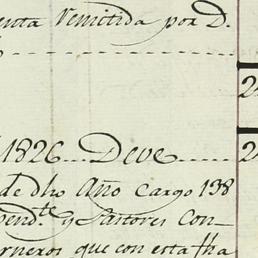 enta Remitida por D.
24
1826 Deve 24
de dho Año Cargo 138
pend.te y Pastores con
rneros que con esta fha